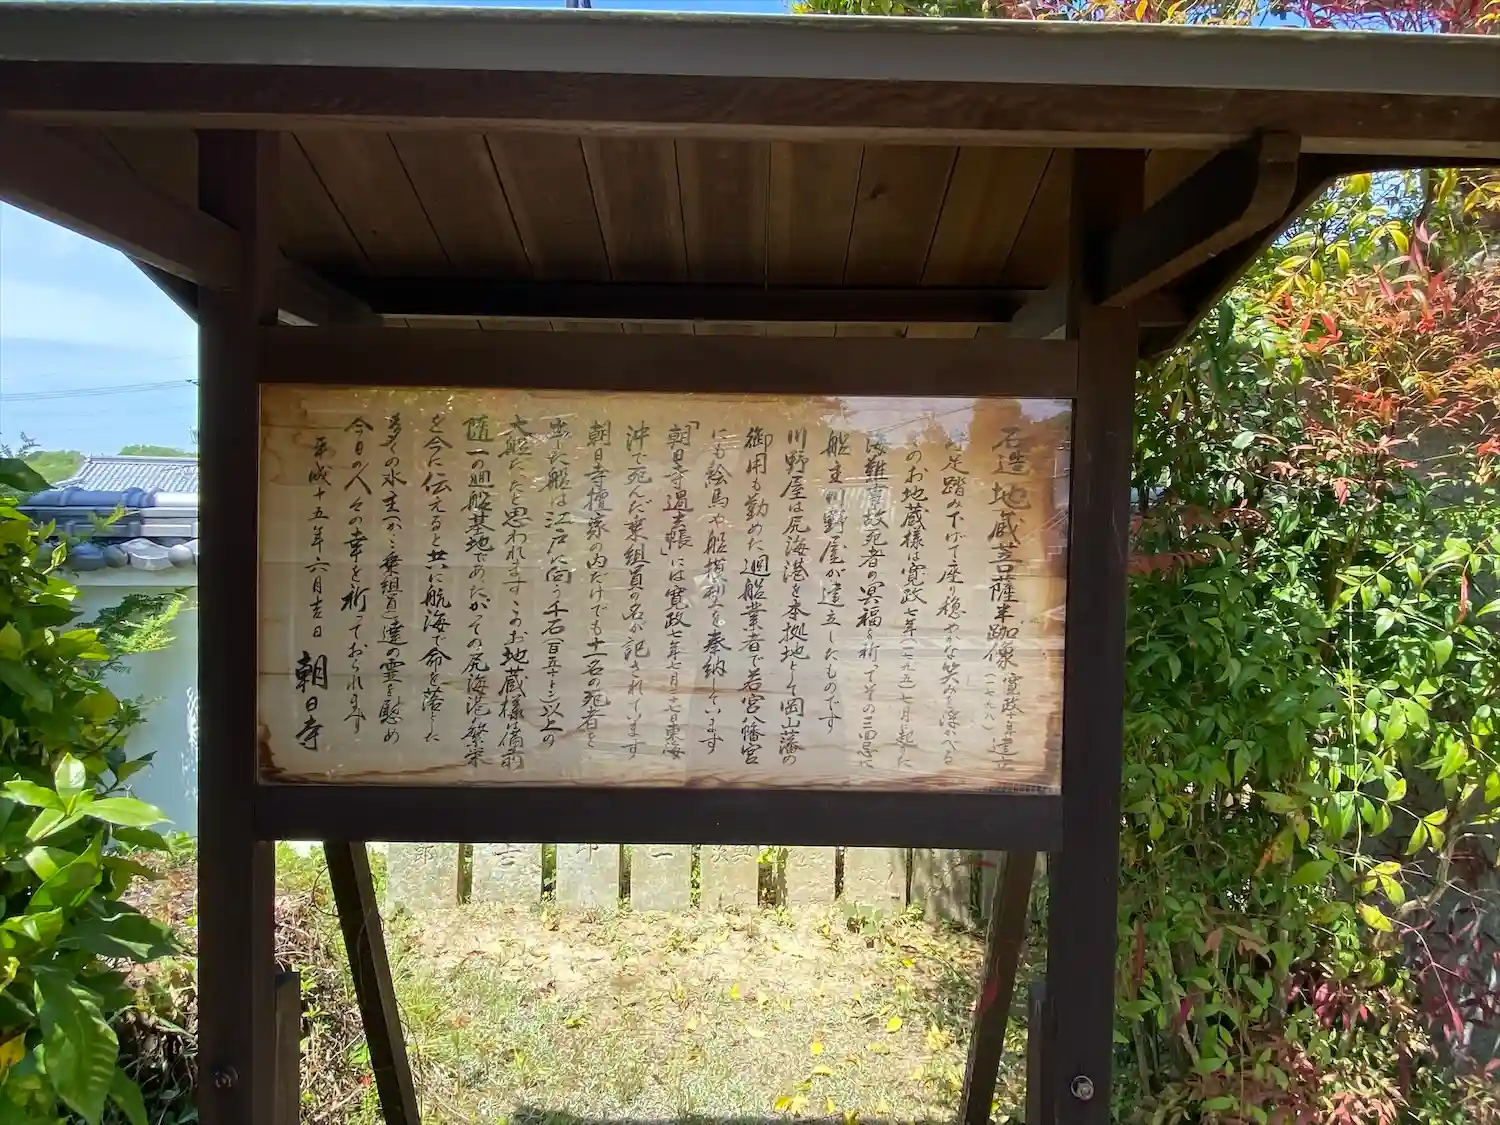 石造地蔵菩薩半跏像 寛政十年建立
(一七九八)
片足踏み下げて座り穏やかな笑みを浮かべる
このお地蔵様は寛政七年(一七九五)七月に起きた
海難事故死者の冥福を祈ってその三回忌に
船主川野屋が建立したものです
川野屋は尻海港を本拠地として岡山藩の
御用も勤めた廻船業者で若宮八幡宮
にも絵馬や船模型を奉納しています
「朝日寺過去帳」には寛政七年七月二六日東海
沖で死んだ乗組員の名が記されています
朝日寺檀家の内だけでも十一名の死者を
出した船は江戸に向う千石(百五十トン)以上の
大船だったと思われます このお地蔵様は備前
随一の廻船基地であったかっての尻海港の繁栄
を今に伝えると共に航海で命を落とした
多くの水主(かこ・乗組員)達の霊を慰め
今日の人々の幸を祈っておられます
平成十五年六月吉日 朝日寺